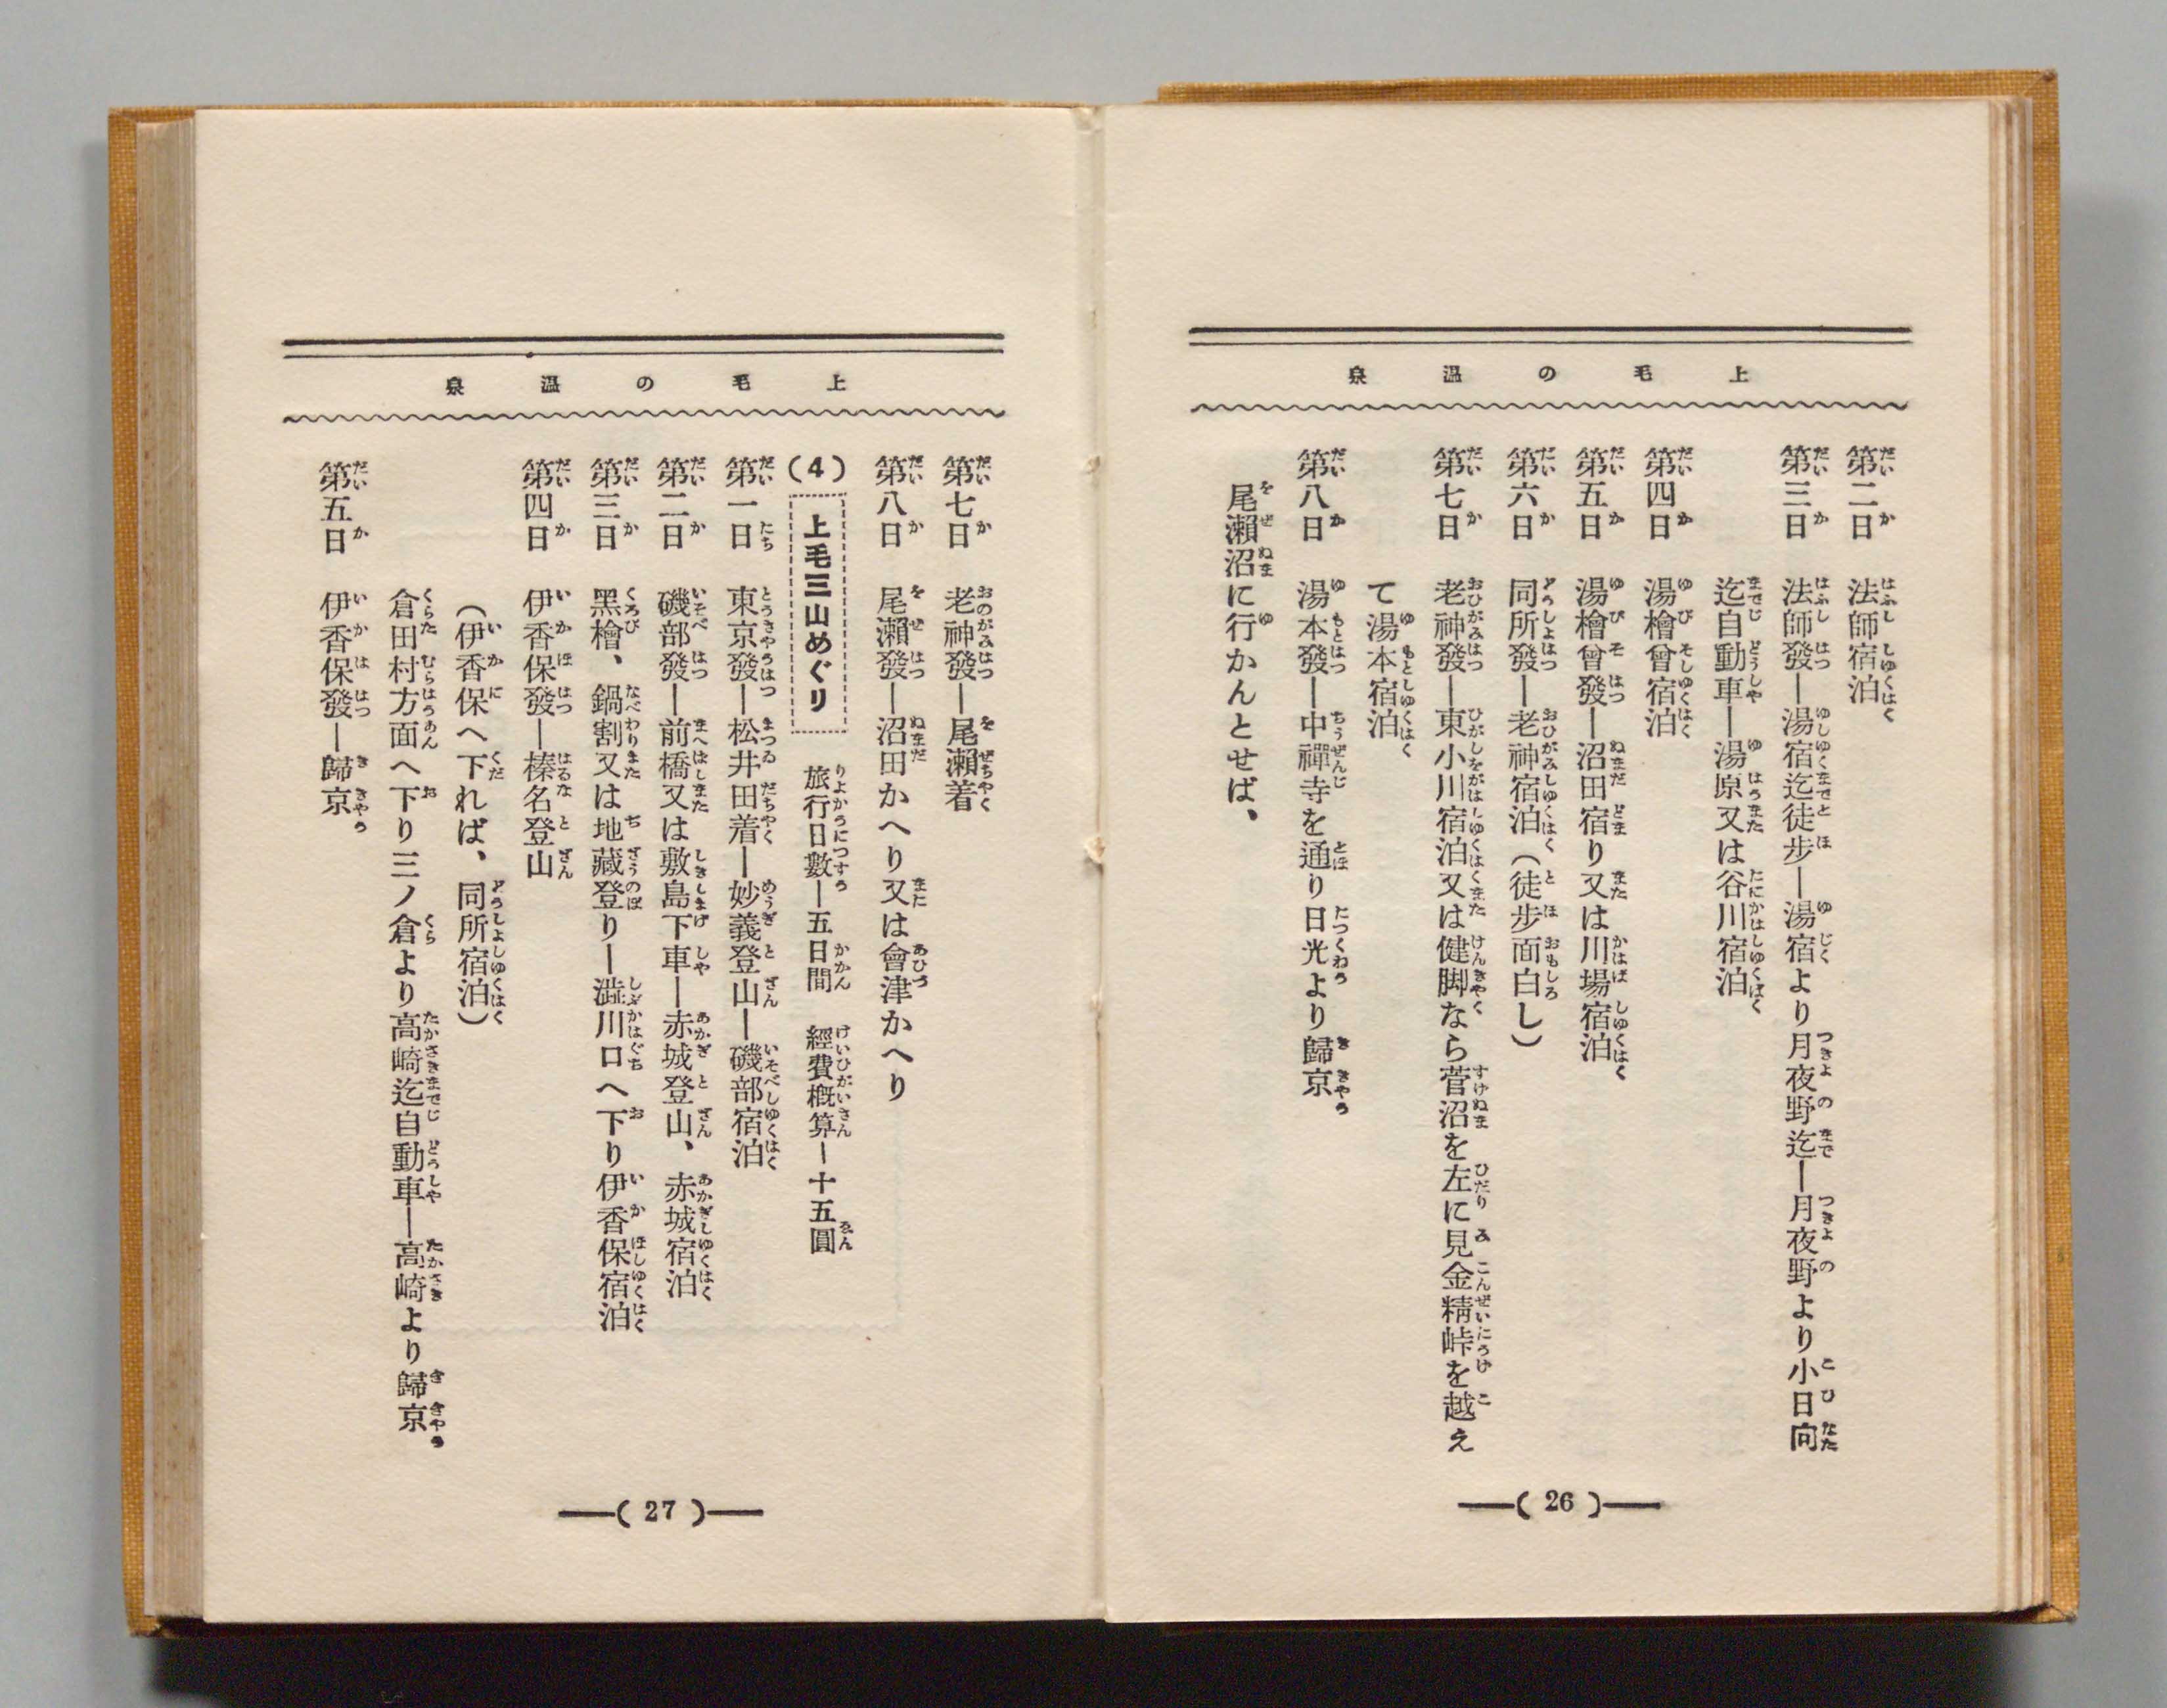 上毛の温泉
第二日 法師宿泊
第三日 法師發―湯宿迄徒步―湯宿より月夜野迄―月夜野より小日向
迄自動車―湯原又は谷川宿泊
第四日 湯檜曾宿泊
第五日 湯檜曾發―沼田宿り又は川場宿泊
第六日 同所發―老神宿泊(徒步面白し)
第七日 老神發―東小川宿泊又は健脚なら菅沼を左に見金精峠を越え
て湯本宿泊
第八日 湯本發―中禪寺を通り日光より歸京
尾瀨沼に行かんとせば、
―( 26 )―
上毛の温泉
第七日 老神發―尾瀨着
第八日 尾瀨發―沼田かへり又は會津かへり
(4) 上毛三山めぐり 旅行日數―五日間 經費概算―十五圓
第一日 東京發―松井田着―妙義登山―磯部宿泊
第二日 磯部發―前橋又は敷島下車―赤城登山、赤城宿泊
第三日 黑檜、鍋割又は地藏登り―澁川口へ下り伊香保宿泊
第四日 伊香保發―榛名登山
(伊香保へ下れば、同所宿泊)
倉田村方面へ下り三ノ倉より高崎迄自動車―高崎より歸京
第五日 伊香保發―歸京
―( 27 )―